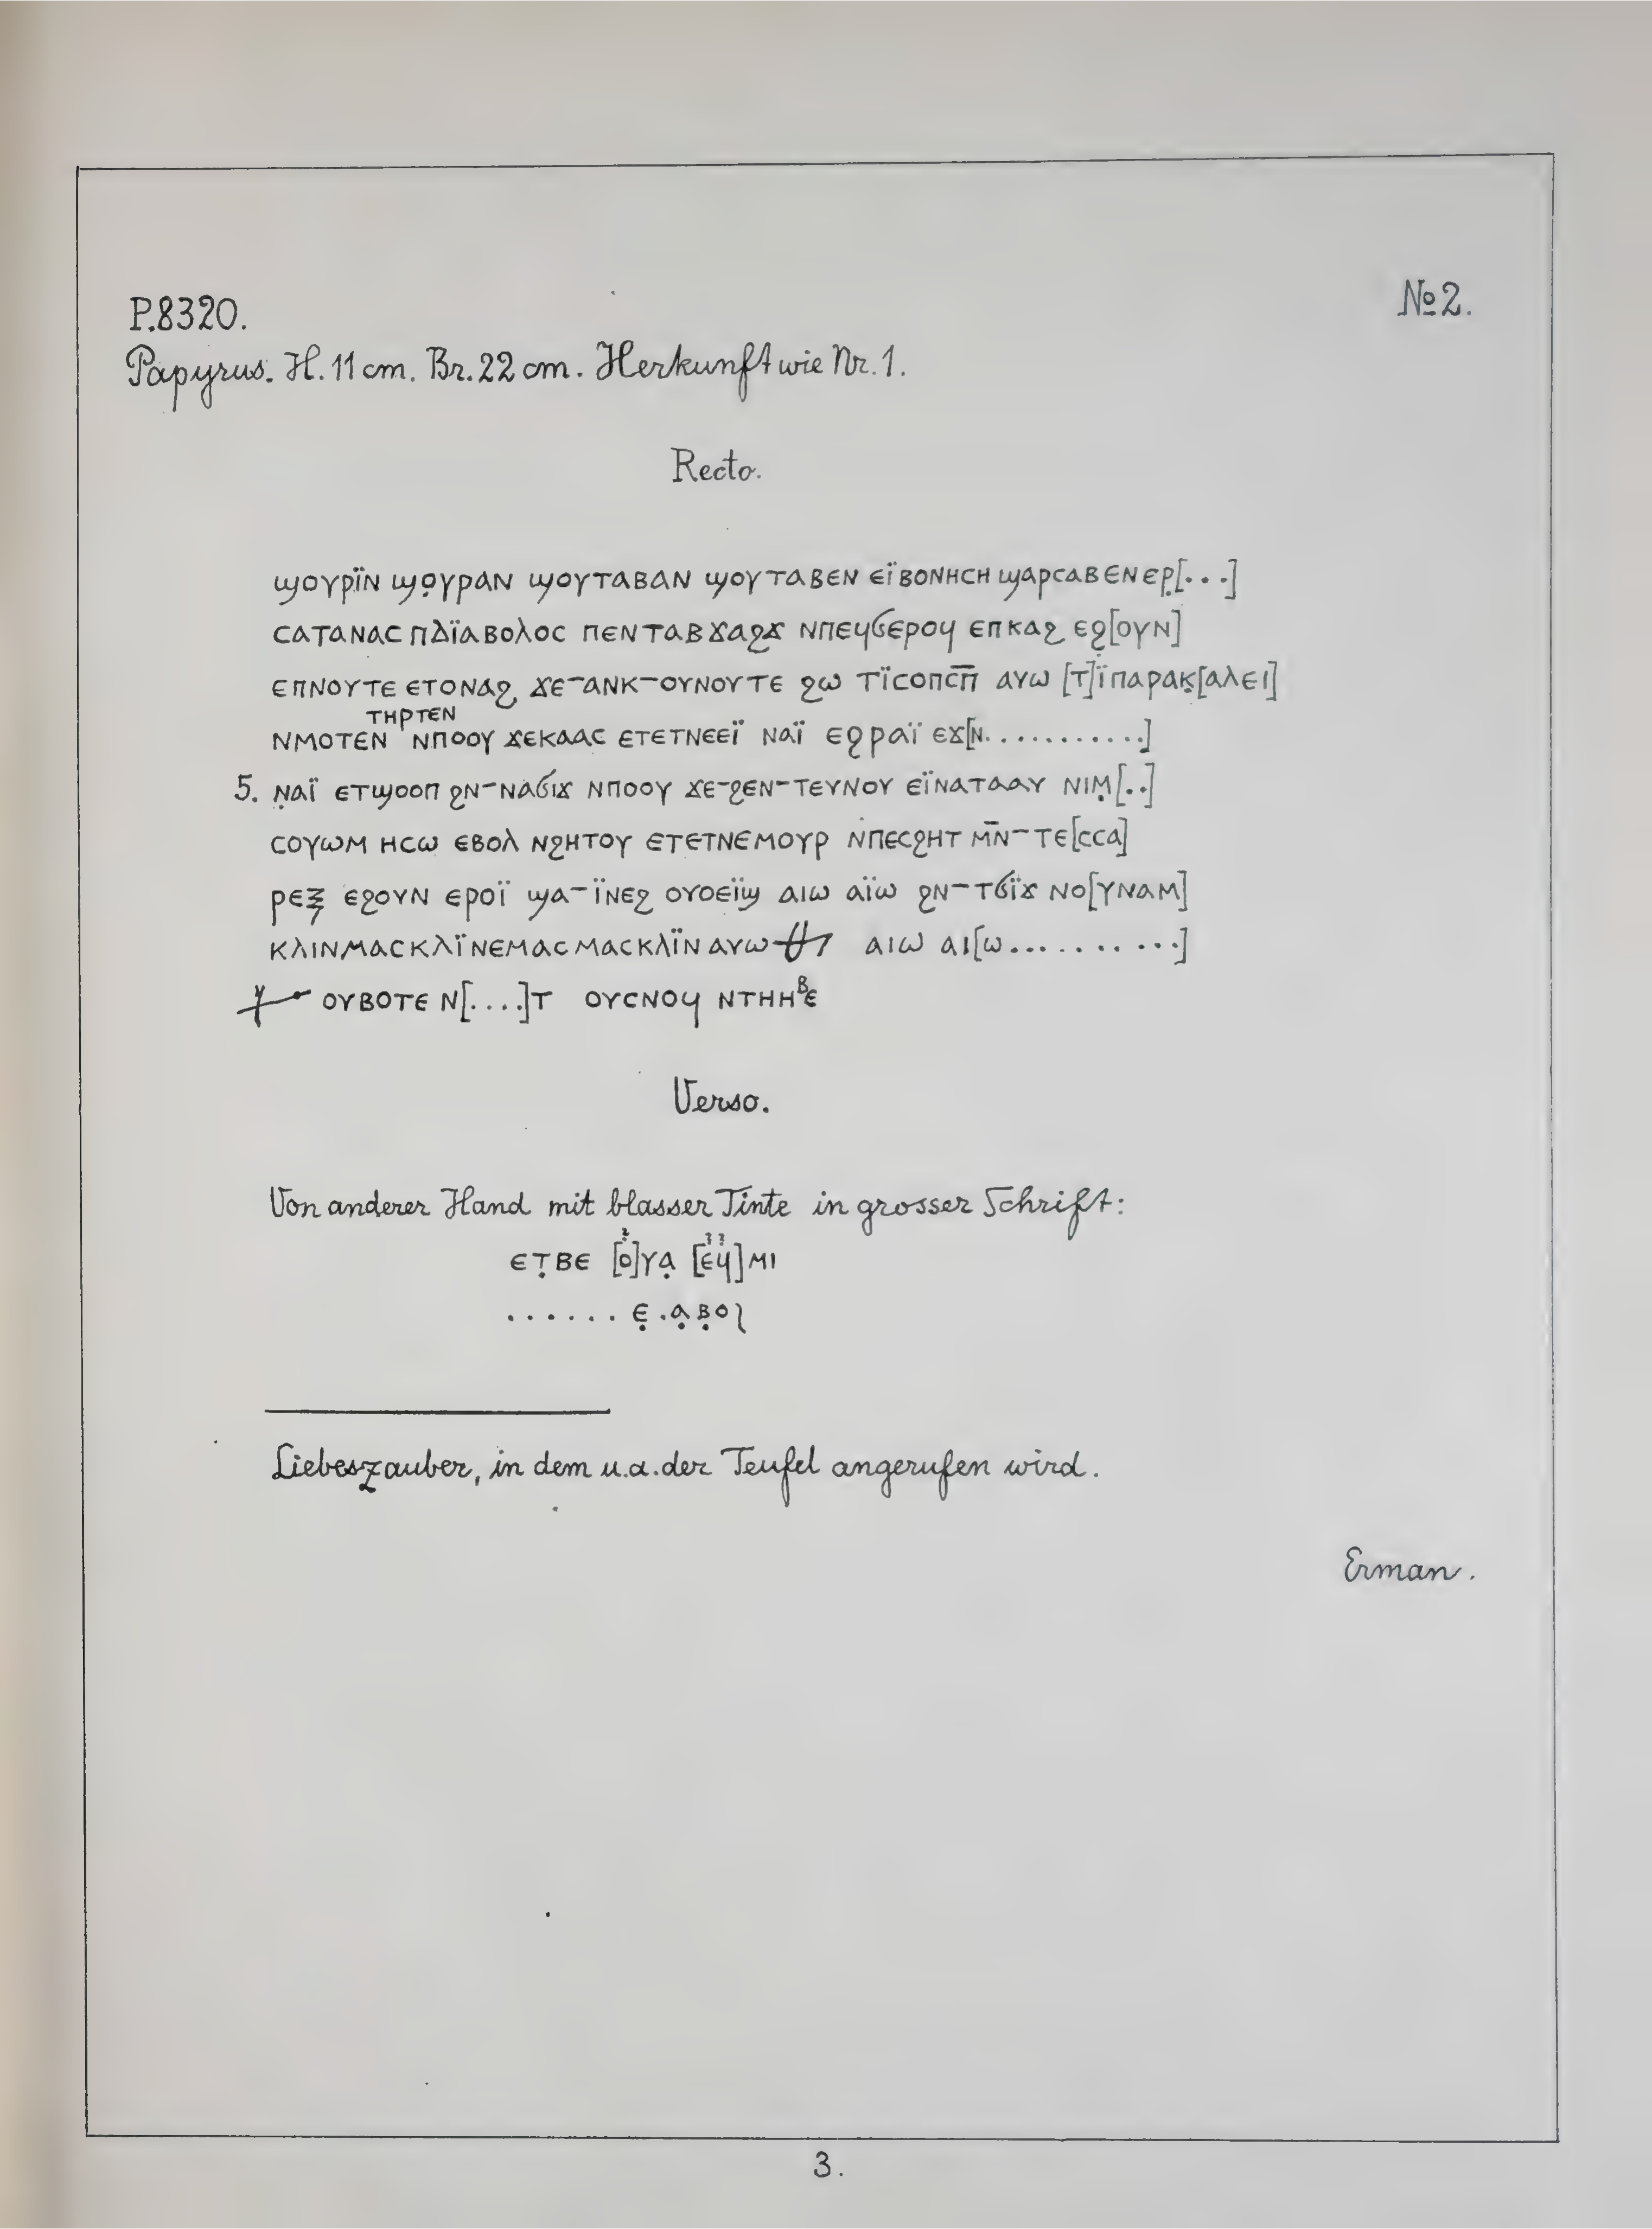 P.8320.
№2.
Papyrus. H. 11 cm. Br. 22 cm. Herkunft wie Nr. 1.
Recto.
ϣⲟⲩⲣⲓ̈ⲛ ϣⲟ̣ⲩⲣⲁⲛ ϣⲟⲩⲧⲁⲃⲁⲛ ϣⲟⲩⲧⲁⲃⲉⲛ ⲉⲓ̈ⲃⲟⲛⲏⲥⲏ ϣⲁⲣⲥⲁⲃⲉⲛⲉⲣ̣[...]
ⲥⲁⲧⲁⲛⲁⲥ ⲡⲇⲓ̈ⲁⲃⲟⲗⲟⲥ ⲡⲉⲛⲧⲁⲃϫⲁϩϫ ⲛⲡⲉϥϭⲉⲣⲟϥ ⲉⲡⲕⲁϩ ⲉϩ̣[ⲟⲩⲛ]
ⲉⲡⲛⲟⲩⲧⲉ ⲉⲧⲟⲛⲁϩ ϫⲉ-ⲁⲛⲕ-ⲟⲩⲛⲟⲩⲧⲉ ϩⲱ ⲧⲓ̈ⲥⲟⲡⲥ̅ⲡ̅ ⲁⲩⲱ [ⲧ]ⲓ̈ⲡⲁⲣⲁⲕ̣[ⲁⲗⲉⲓ]
ⲧⲏⲣⲧⲉⲛ
ⲛⲙⲟⲧⲉⲛ ⲛⲡⲟⲟⲩ ϫⲉⲕⲁⲁⲥ ⲉⲧⲉⲧⲛⲉⲉⲓ̈ ⲛⲁⲓ̈ ⲉϩⲣⲁⲓ̈ ⲉϫ[ⲛ...........]
5. ⲛ̣ⲁⲓ̈ ⲉⲧϣⲟⲟⲡ ϩⲛ-ⲛⲁϭⲓϫ ⲛⲡⲟⲟⲩ ϫⲉ-ϩⲉⲛ-ⲧⲉⲩⲛⲟⲩ ⲉⲓ̈ⲛⲁⲧⲁⲁⲩ ⲛⲓⲙ̣[..]
ⲥⲟⲩⲱⲙ ⲏⲥⲱ ⲉⲃⲟⲗ ⲛϩⲏⲧⲟⲩ ⲉⲧⲉⲧⲛⲉⲙⲟⲩⲣ ⲛⲡⲉⲥϩⲏⲧ ⲙ̅ⲛ̅-ⲧⲉ[ⲥⲥⲁ]
ⲣⲉⲝ ⲉϩⲟⲩⲛ ⲉⲣⲟⲓ̈ ϣⲁ-ⲓ̈ⲛⲉϩ ⲟⲩⲟⲉⲓ̈ϣ ⲁⲓⲱ ⲁⲓ̈ⲱ ϩⲛ-ⲧϭⲓ̈ϫ ⲛⲟ[ⲩⲛⲁⲙ]
ⲕⲗⲓⲛⲙⲁⲥⲕⲗⲓ̈ⲛⲉⲙⲁⲥⲙⲁⲥⲕⲗⲓ̈ⲛ ⲁⲩⲱ ⲁⲓⲱ ⲁⲓ[ⲱ...........]
ⲟⲩⲃⲟⲧⲉ ⲛ[....]ⲧ ⲟⲩⲥⲛⲟϥ ⲛⲧⲏⲏⲃⲉ
Verso.
Von anderer Hand mit blasser Tinte in grosser Schrift:
ⲉⲧ̣ⲃⲉ [ⲟ]ⲩⲁ̣ [ⲉϥ]ⲙⲓ
......ⲉ̣.ⲁ̣ⲃ̣ⲟ
Liebeszauber, in dem u.a. der Teufel angerufen wird.
Erman.
3.